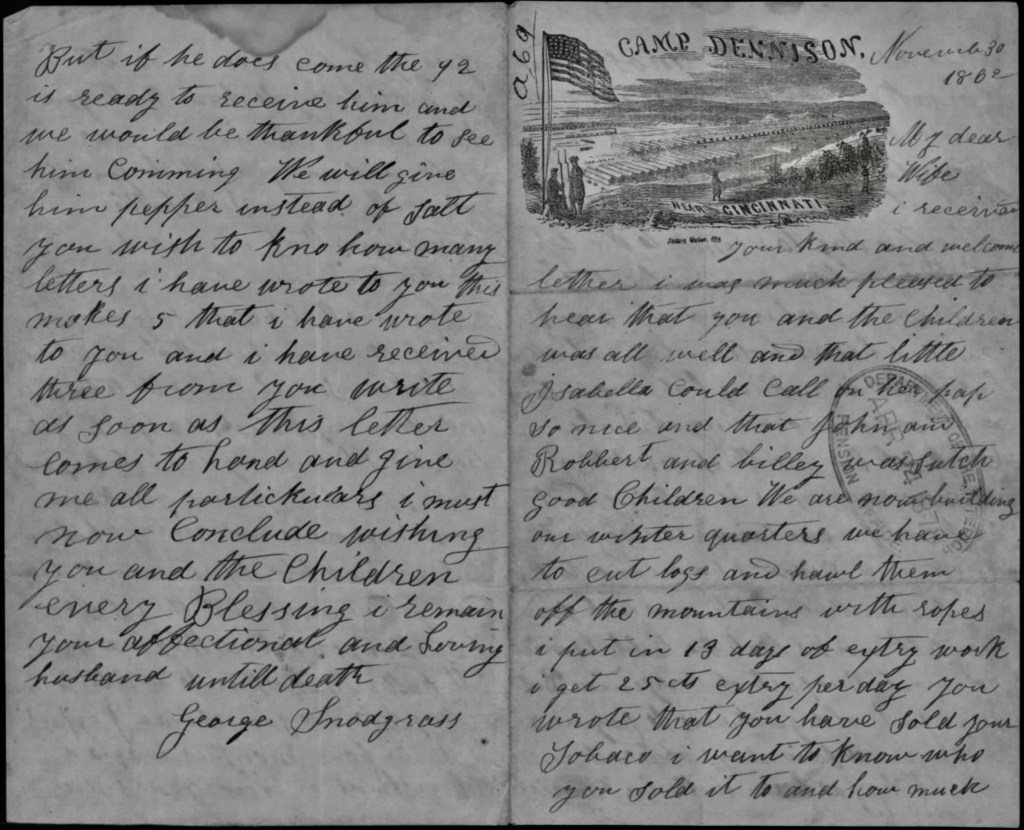 a69
CAMP DENNISON,
NEAR CINCINNATI.
November 30
1862
My dear
Wife
i received
your kind and welcome
letter i was much pleased to
hear that you and the Children
was all well and that little
Isabella could call on her pap
so nice and that John and
Robbert and billey was sutch
good Children We are now building
our winter quarters we have
to cut logs and hawl them
off the mountains with ropes
i put in 13 days of extry work
i get 25 cts extry per day you
wrote that you have sold your
Tobaco i want to know who
you sold it to and how much
But if he does come the 92
is ready to receive him and
we would be thankful to see
him Comming We will give
him pepper instead of salt
you wish to kno how many
letters i have wrote to you this
makes 5 that i have wrote
to you and i have received
three from you write
as soon as this letter
comes to hand and give
me all partickulars i must
now Conclude wishing
you and the Children
every Blessing i remain
your affectional and Loving
husband untill death
George Snodgrass